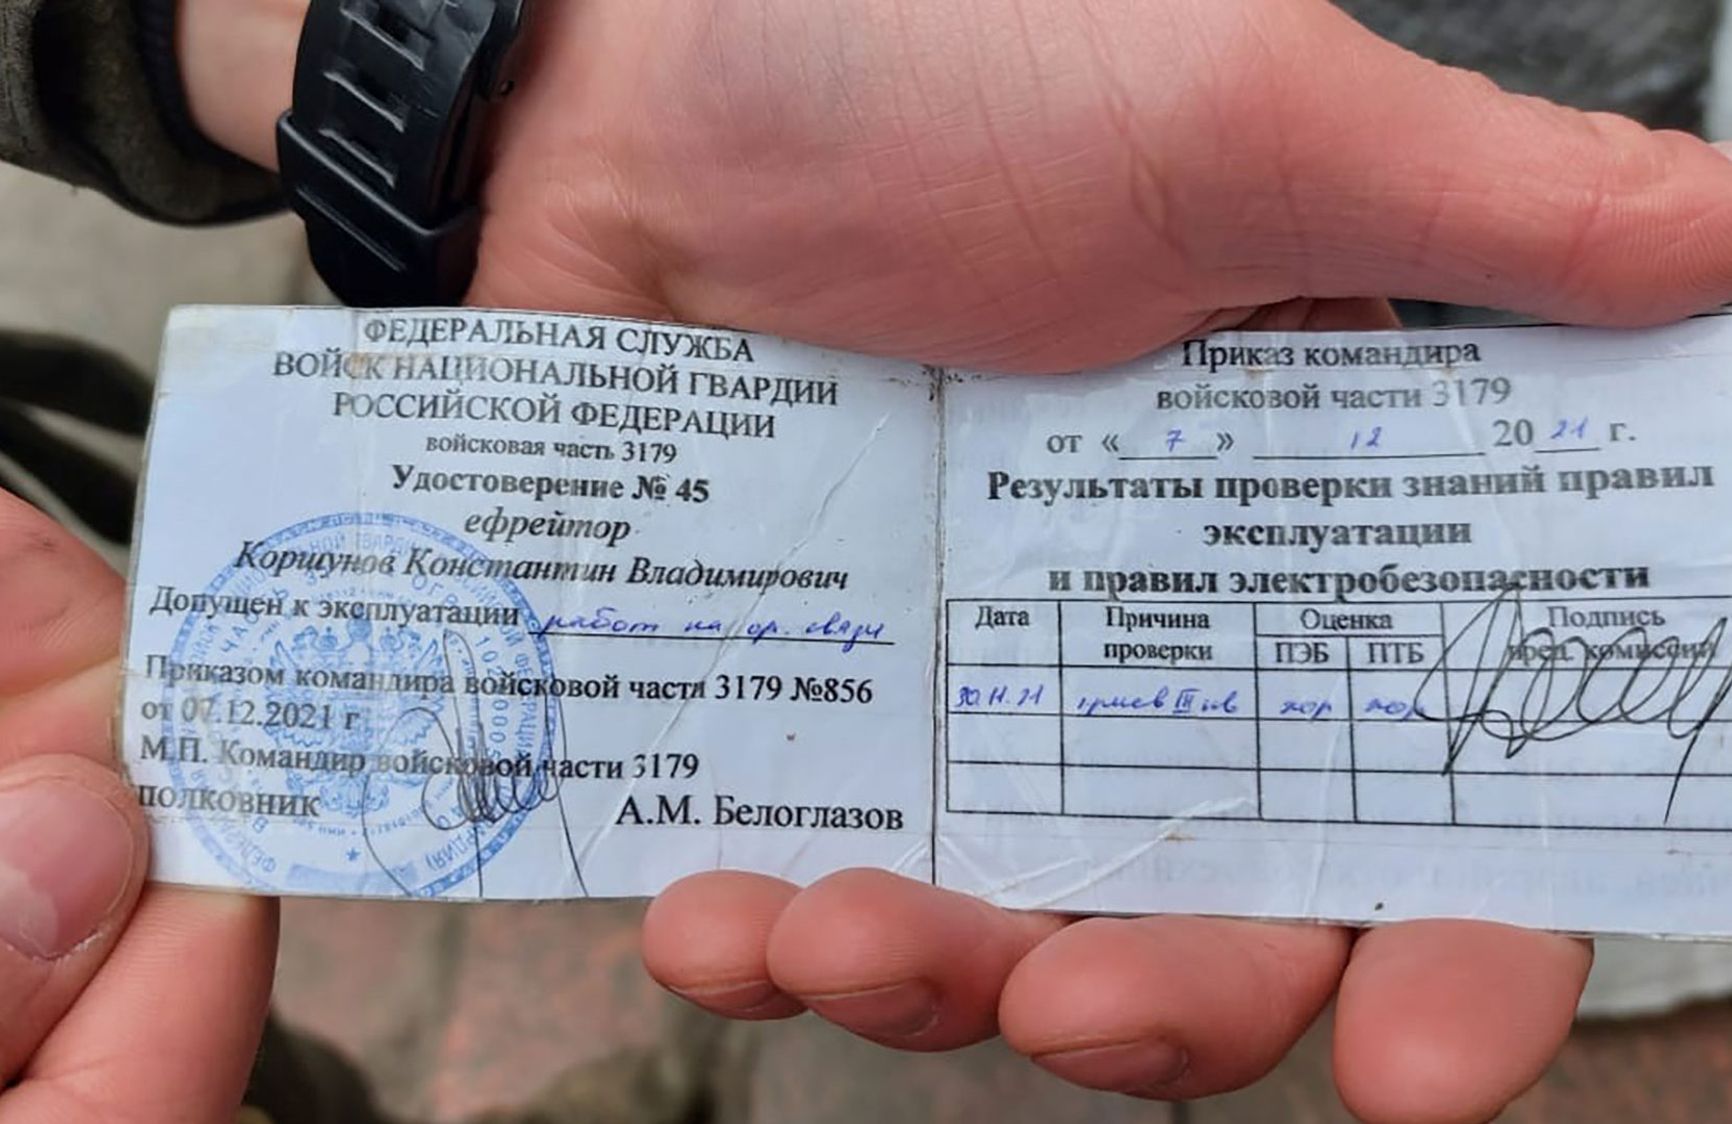 ФЕДЕРАЛЬНАЯ СЛУЖБА
ВОЙСК НАЦИОНАЛЬНОЙ ГВАРДИИ
РОССИЙСКОЙ ФЕДЕРАЦИИ
войсковая часть 3179
Удостоверение № 45
ефрейтор
Коршунов Константин Владимирович
Допущен к эксплуатации работ на ор. связи
Приказом командира войсковой части 3179 №856
от 07.12.2021 г
М.П. Командир войсковой части 3179
полковник А.М. Белоглазов
Приказ командира
войсковой части 3179
от « 7 » 12 20 21 г.
Результаты проверки знаний правил
эксплуатации
и правил электробезопасности
Дата Причина проверки Оценка Подпись пред. комиссии
ПЭБ ПТБ
30.11.21 III хор хор